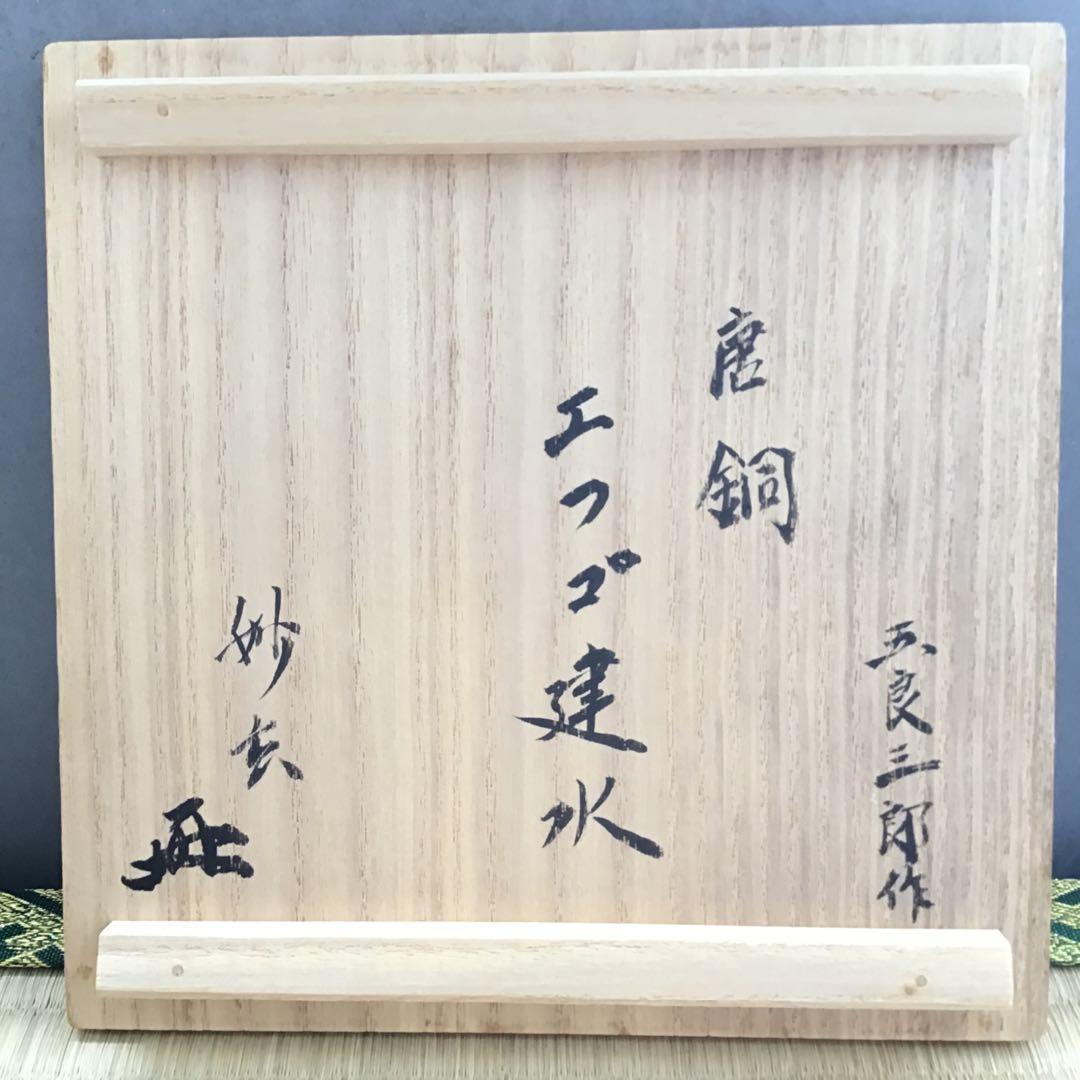 五良三郎作
唐銅
エフゴ建水
妙玄